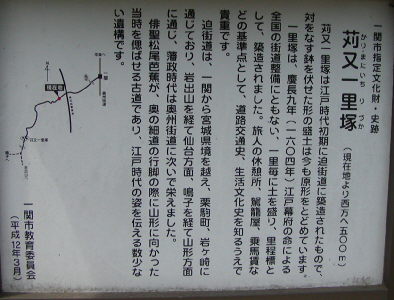 一関市指定文化財・史跡
かりまたいちりづか
苅又一里塚
(現在地より西方へ五〇〇m)
苅又一里塚は江戸時代初期に迫街道に築造されたもので、
対をなす鉢を伏せた形の盛土は今も原形をとどめています。
一里塚は、慶長九年(一六〇四年)江戸幕府の命による
全国の街道整備にともない、一里毎に土を盛り、里程標と
して、築造されました。旅人の休憩所、駕籠屋、乗馬賃な
どの基準点として、道路交通史、生活文化史を知るうえで
貴重です。
迫街道は、一関から宮城県境を越え、栗駒町、岩ヶ崎に
通じており、岩出山を経て仙台方面、鳴子を経て山形方面
に通じ、藩政時代は奥州街道に次いで栄えました。
俳聖松尾芭蕉が、奥の細道の行脚の際に山形に向かった
当時を偲ばせる古道であり、江戸時代の姿を伝える数少な
い遺構です。
一関市教育委員会
(平成12年3月)
現在地
苅又一里塚